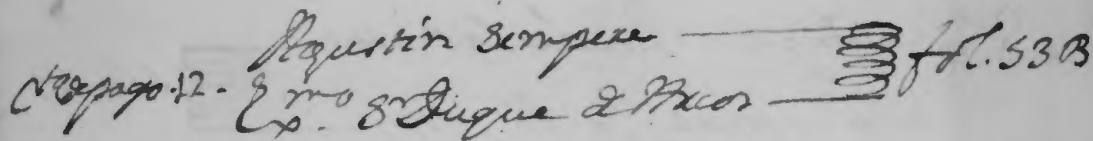 Agustin Sempere
pago. 12. Exmo Sr Duque de Arcos fol. 53 B